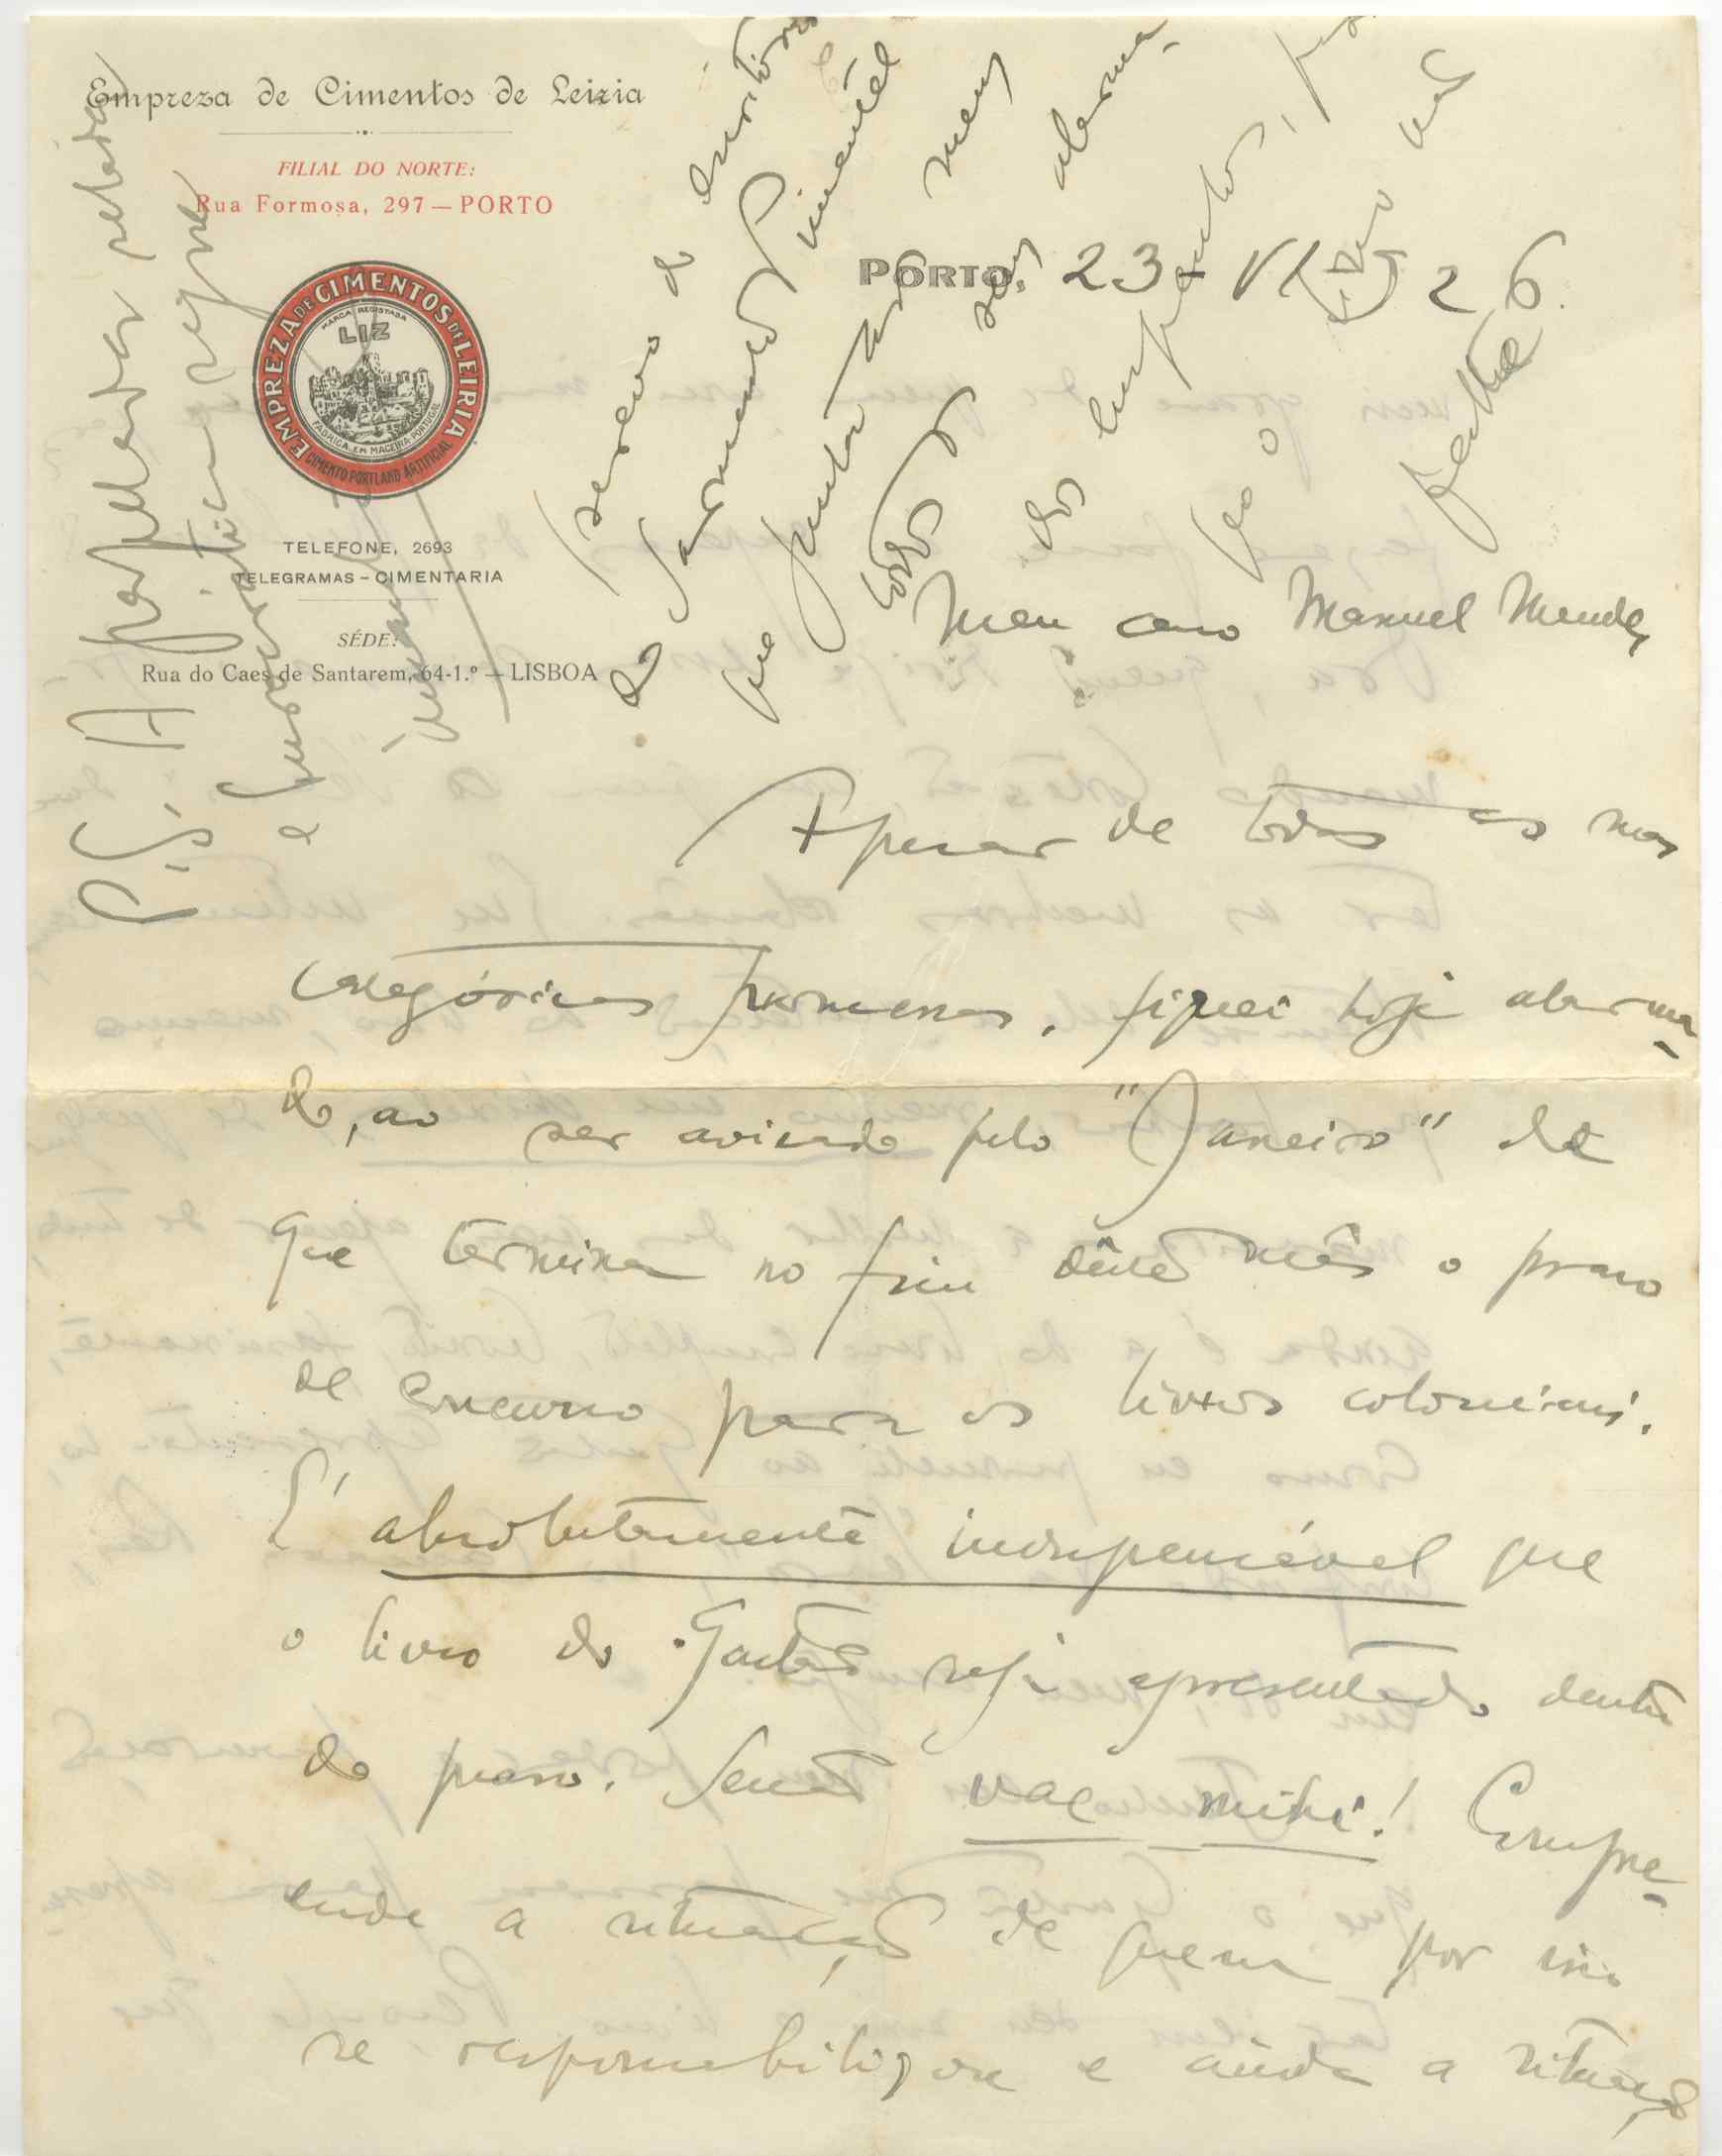 Empreza de Cimentos de Leiria
FILIAL DO NORTE:
Rua Formosa, 297 — PORTO
EMPREZA DE CIMENTOS DE LEIRIA
MARCA REGISTADA
LIZ
FABRICA EM MACEIRA PORTUGAL
CIMENTO PORTLAND ARTIFICIAL
TELEFONE, 2693
TELEGRAMAS – CIMENTARIA
SÉDE:
Rua do Caes de Santarem, 64-1.º — LISBOA
PORTO, 23 VI 26.
Meu caro Manuel Mendes
Apesar de todas as nossas
categóricas promessas, fiquei hoje alarma-
do, ao ser avisado pelo "Janeiro" de
que termina no fim dêste mês o prazo
de concurso para os livros coloniais.
É absolutamente indispensável que
o livro do Gastão seja apresentado dentro
do prazo. Senão vae mihi! Compre-
ende a situação de quem por isso
se responsabilizou e ainda a situação
P.S. A
e
Escrevo do escritório
do Sarmento Pimentel
que junta aos meus
todos os seus alarma-
dos cumprimentos,